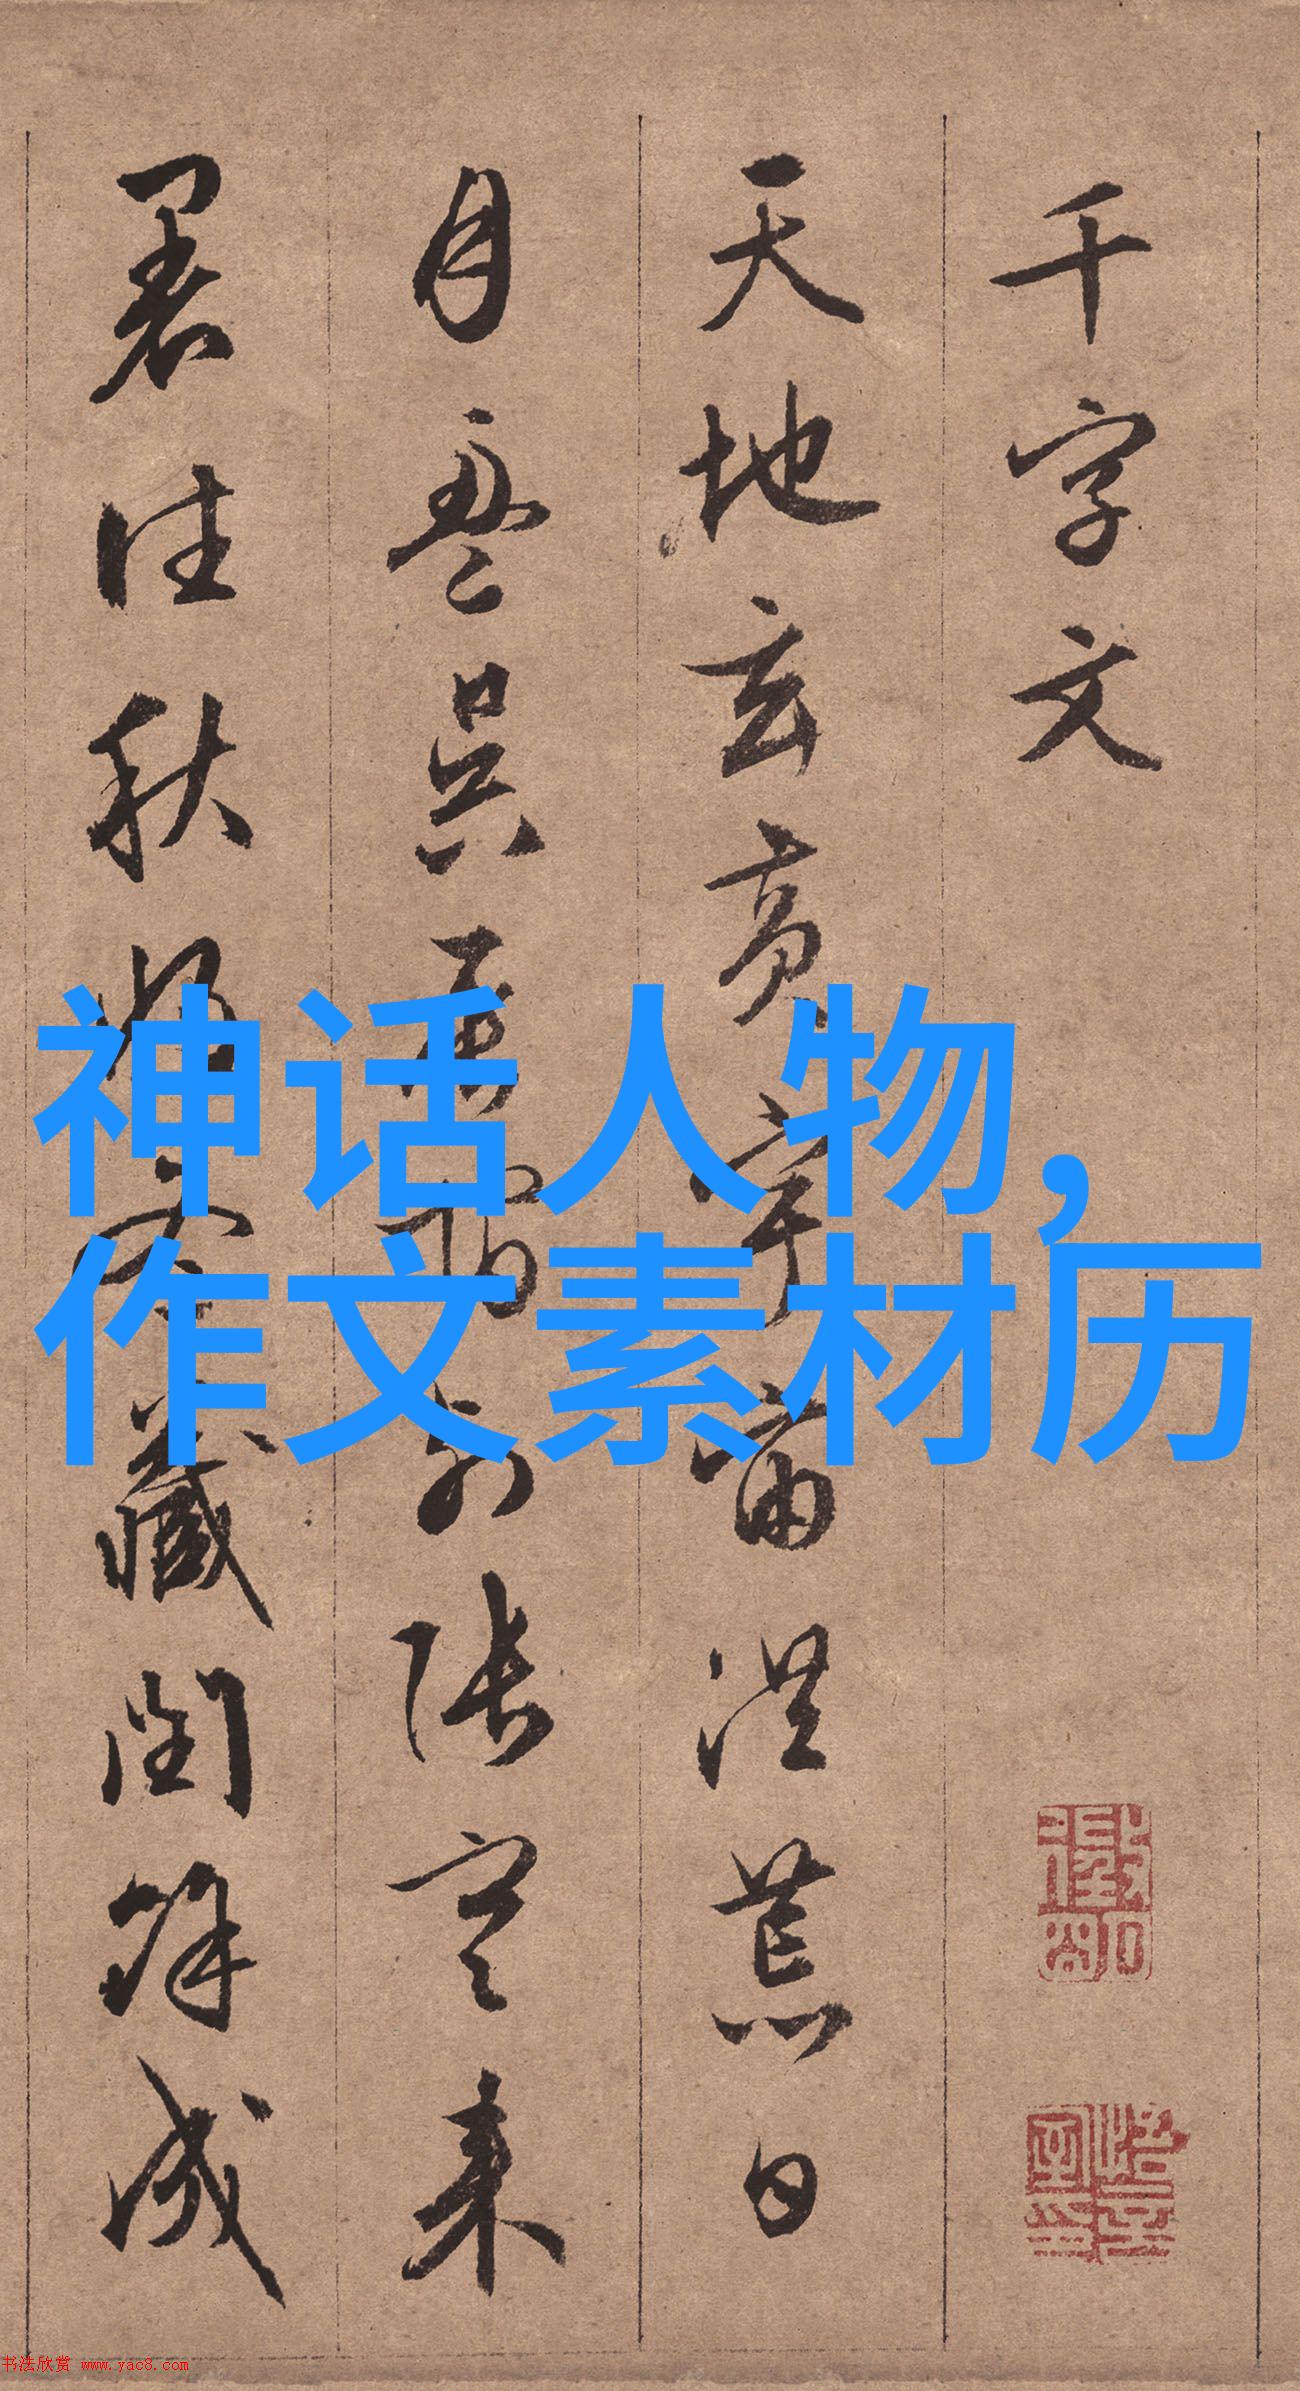 千字文
天地玄黄宇宙洪荒日
月盈昃辰宿列張寒来
暑往秋收冬藏閏餘成
神话人物,
作文素材历
书法欣赏 www.yac8.com